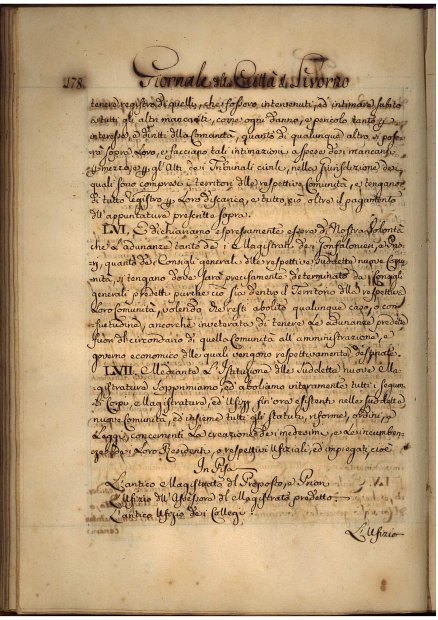 178. Giornale di Città di Livorno
tenere registro di quelli, che fossero intervenuti, ed intimare subito
a tutti gli altri mancanti, come ogni danno, e pericolo tanto p
interesse, e diritti dlla Comunità, quanto di qualunque altro, si pose
sopra Loro, e facciano tal intimazioni a spese dei mancanti
p mezzo gl'Atti dei Tribunali civili, nella Giurisdizione dei
quali sono compresi i territori dlle respettive Comunità, e tengano
di tutto registro p Loro discarico, e tutto ciò oltre il pagamento
dll'appuntatura prescritto sopra.
LVI. E dichiariamo espressamente essere di Nostra Volontà
che L'adunanze tanto dei Magistrati dei Gonfalonieri, e Priori,
quanto dei Consigli generali dlle respettive suddette nuove Comu
nità, si tengano dove sarà precisamente determinato da i Regolamenti
generali predetti purche ciò sia dentro il Territorio dlla respettiva
Loro Comunità, volendo che resti abolito qualunque caso, o con
suetudine, ancorche inveterata di tenere Le adunanze predette
fuori di circondario di quella Comunità all'amministrazione, e
governo economico dlle quali vengono respettivamente destinate.
LVII. Mediante L'Istituzione dlle suddette nuove Ma
gistrature Sopprimiamo ed aboliamo interamente tutti i seguen
ti Corpi, Magistrature, ed Ufizj fin'ora esistenti nelle suddette
nuove Comunità, ed insieme tutti gli statuti, riforme, ordini, e
Leggi concernenti La creazione dei medesimi, e Le incumben
ze dei Loro Residenti, o respettivi Ufiziali, ed impiegati, cioe
In Pisa
L'antico Magistrato dl Proposto, e Priori
L'Ufizio dll'Assessore dl Magistrato predetto
L'antico Ufizio dei Collegi
L'Ufizio